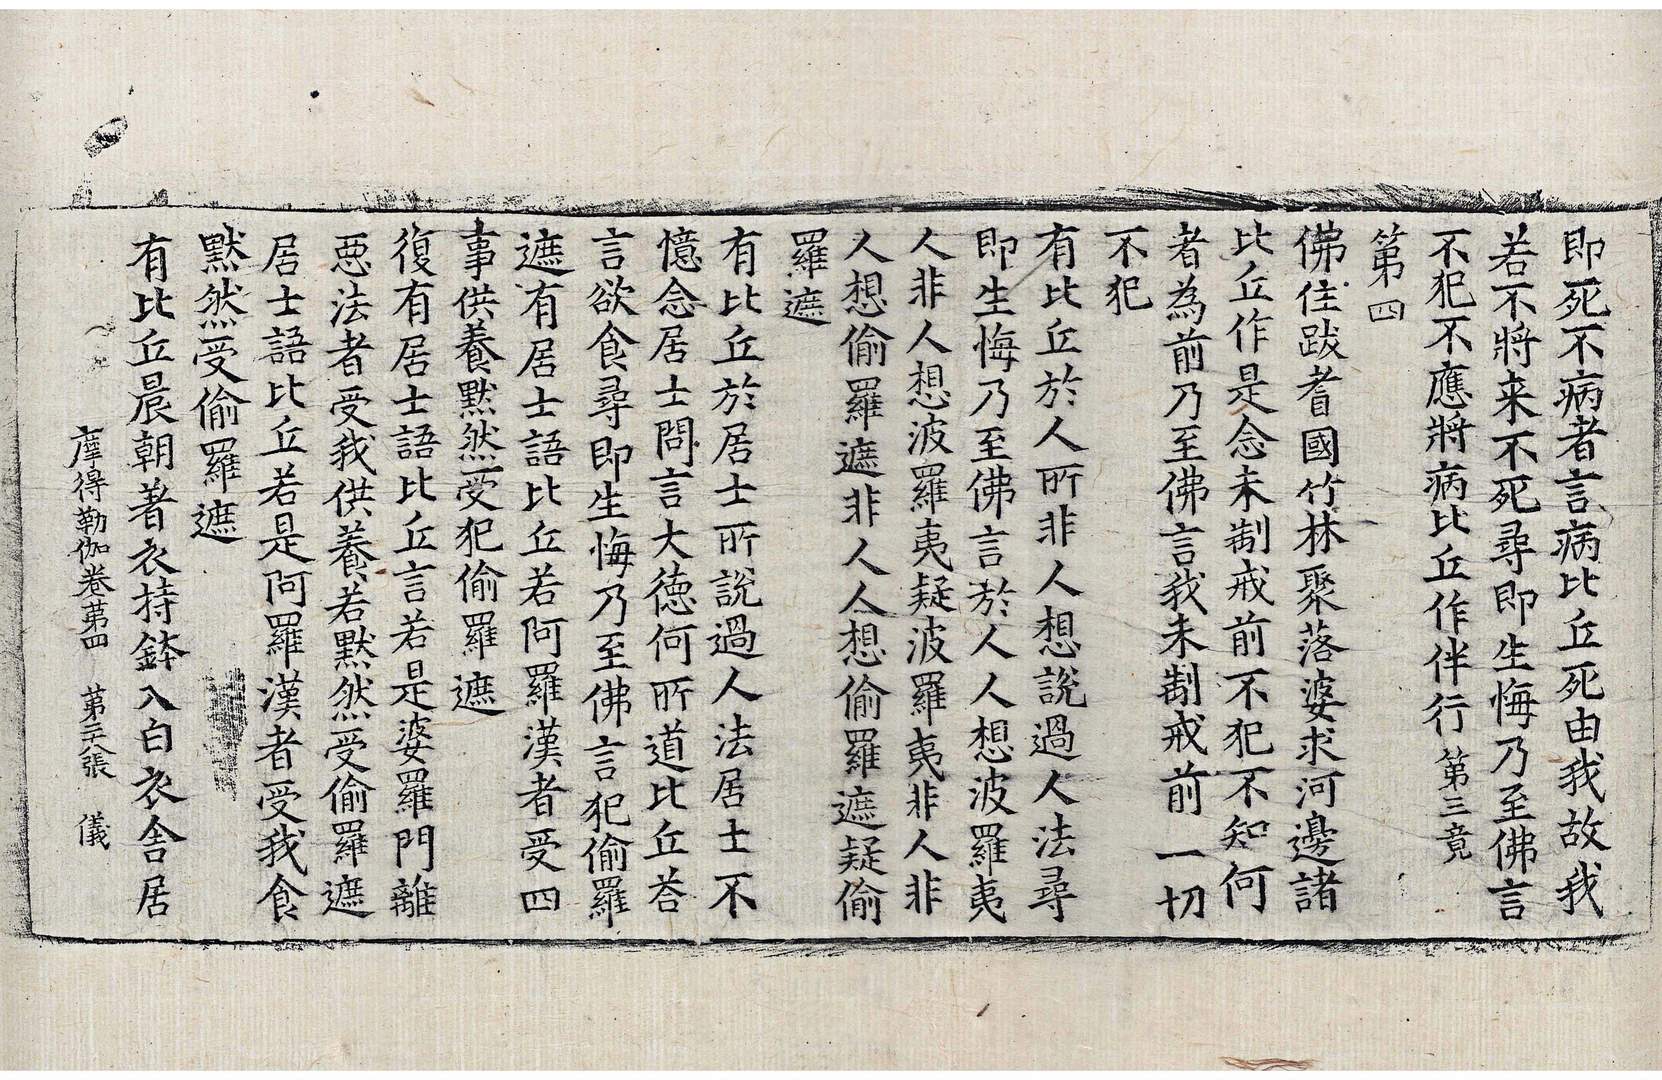 即死不病者言病比丘死由我故我
若不將来不死尋即生悔乃至佛言
不犯不應將病比丘作伴行第三竟
第四
佛住跋耆國竹林聚落婆求河邊諸
比丘作是念未制戒前不犯不知何
者為前乃至佛言我未制戒前一切
不犯
有比丘於人所非人想說過人法尋
即生悔乃至佛言於人人想波羅夷
人非人想波羅夷疑波羅夷非人非
人想偷羅遮非人人想偷羅遮疑偷
羅遮
有比丘於居士所說過人法居士不
憶念居士問言大德何所道比丘荅
言欲食尋即生悔乃至佛言犯偷羅
遮有居士語比丘若阿羅漢者受四
事供養默然受犯偷羅遮
復有居士語比丘言若是婆羅門離
惡法者受我供養若默然受偷羅遮
居士語比丘若是阿羅漢者受我食
默然受偷羅遮
有比丘晨朝著衣持鉢入白衣舍居
摩得勒伽卷苐四 第二八張 儀